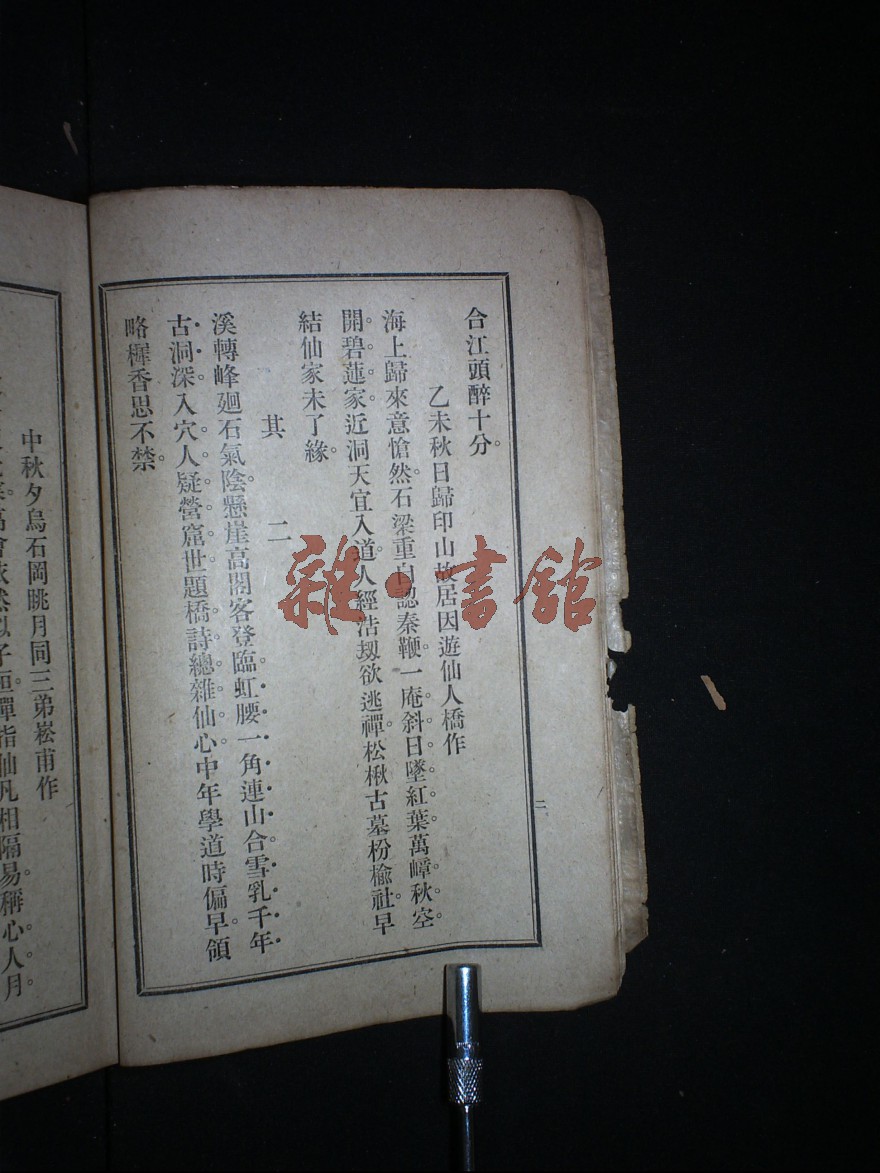 合江頭醉十分。
乙未秋日歸印山故居因遊仙人橋作
海上歸來意愴然。石梁重自認秦鞭。一庵斜日墜紅葉。萬嶂秋空
開碧蓮。家近洞天宜入道。人經浩刼欲逃禪。松楸古墓枌榆社。早
結仙家未了緣。
其二
溪轉峰廻石氣陰。懸崖高閣客登臨。虹腰一角連山合。雪乳千年
古洞深。入穴人疑營窟世。題橋詩總雜仙心。中年學道時偏早。領
略樨香思不禁。
二
中秋夕烏石岡眺月同三弟崧甫作
高會依然似子桓。彈指仙凡相隔易。稱心人月
雜·書館